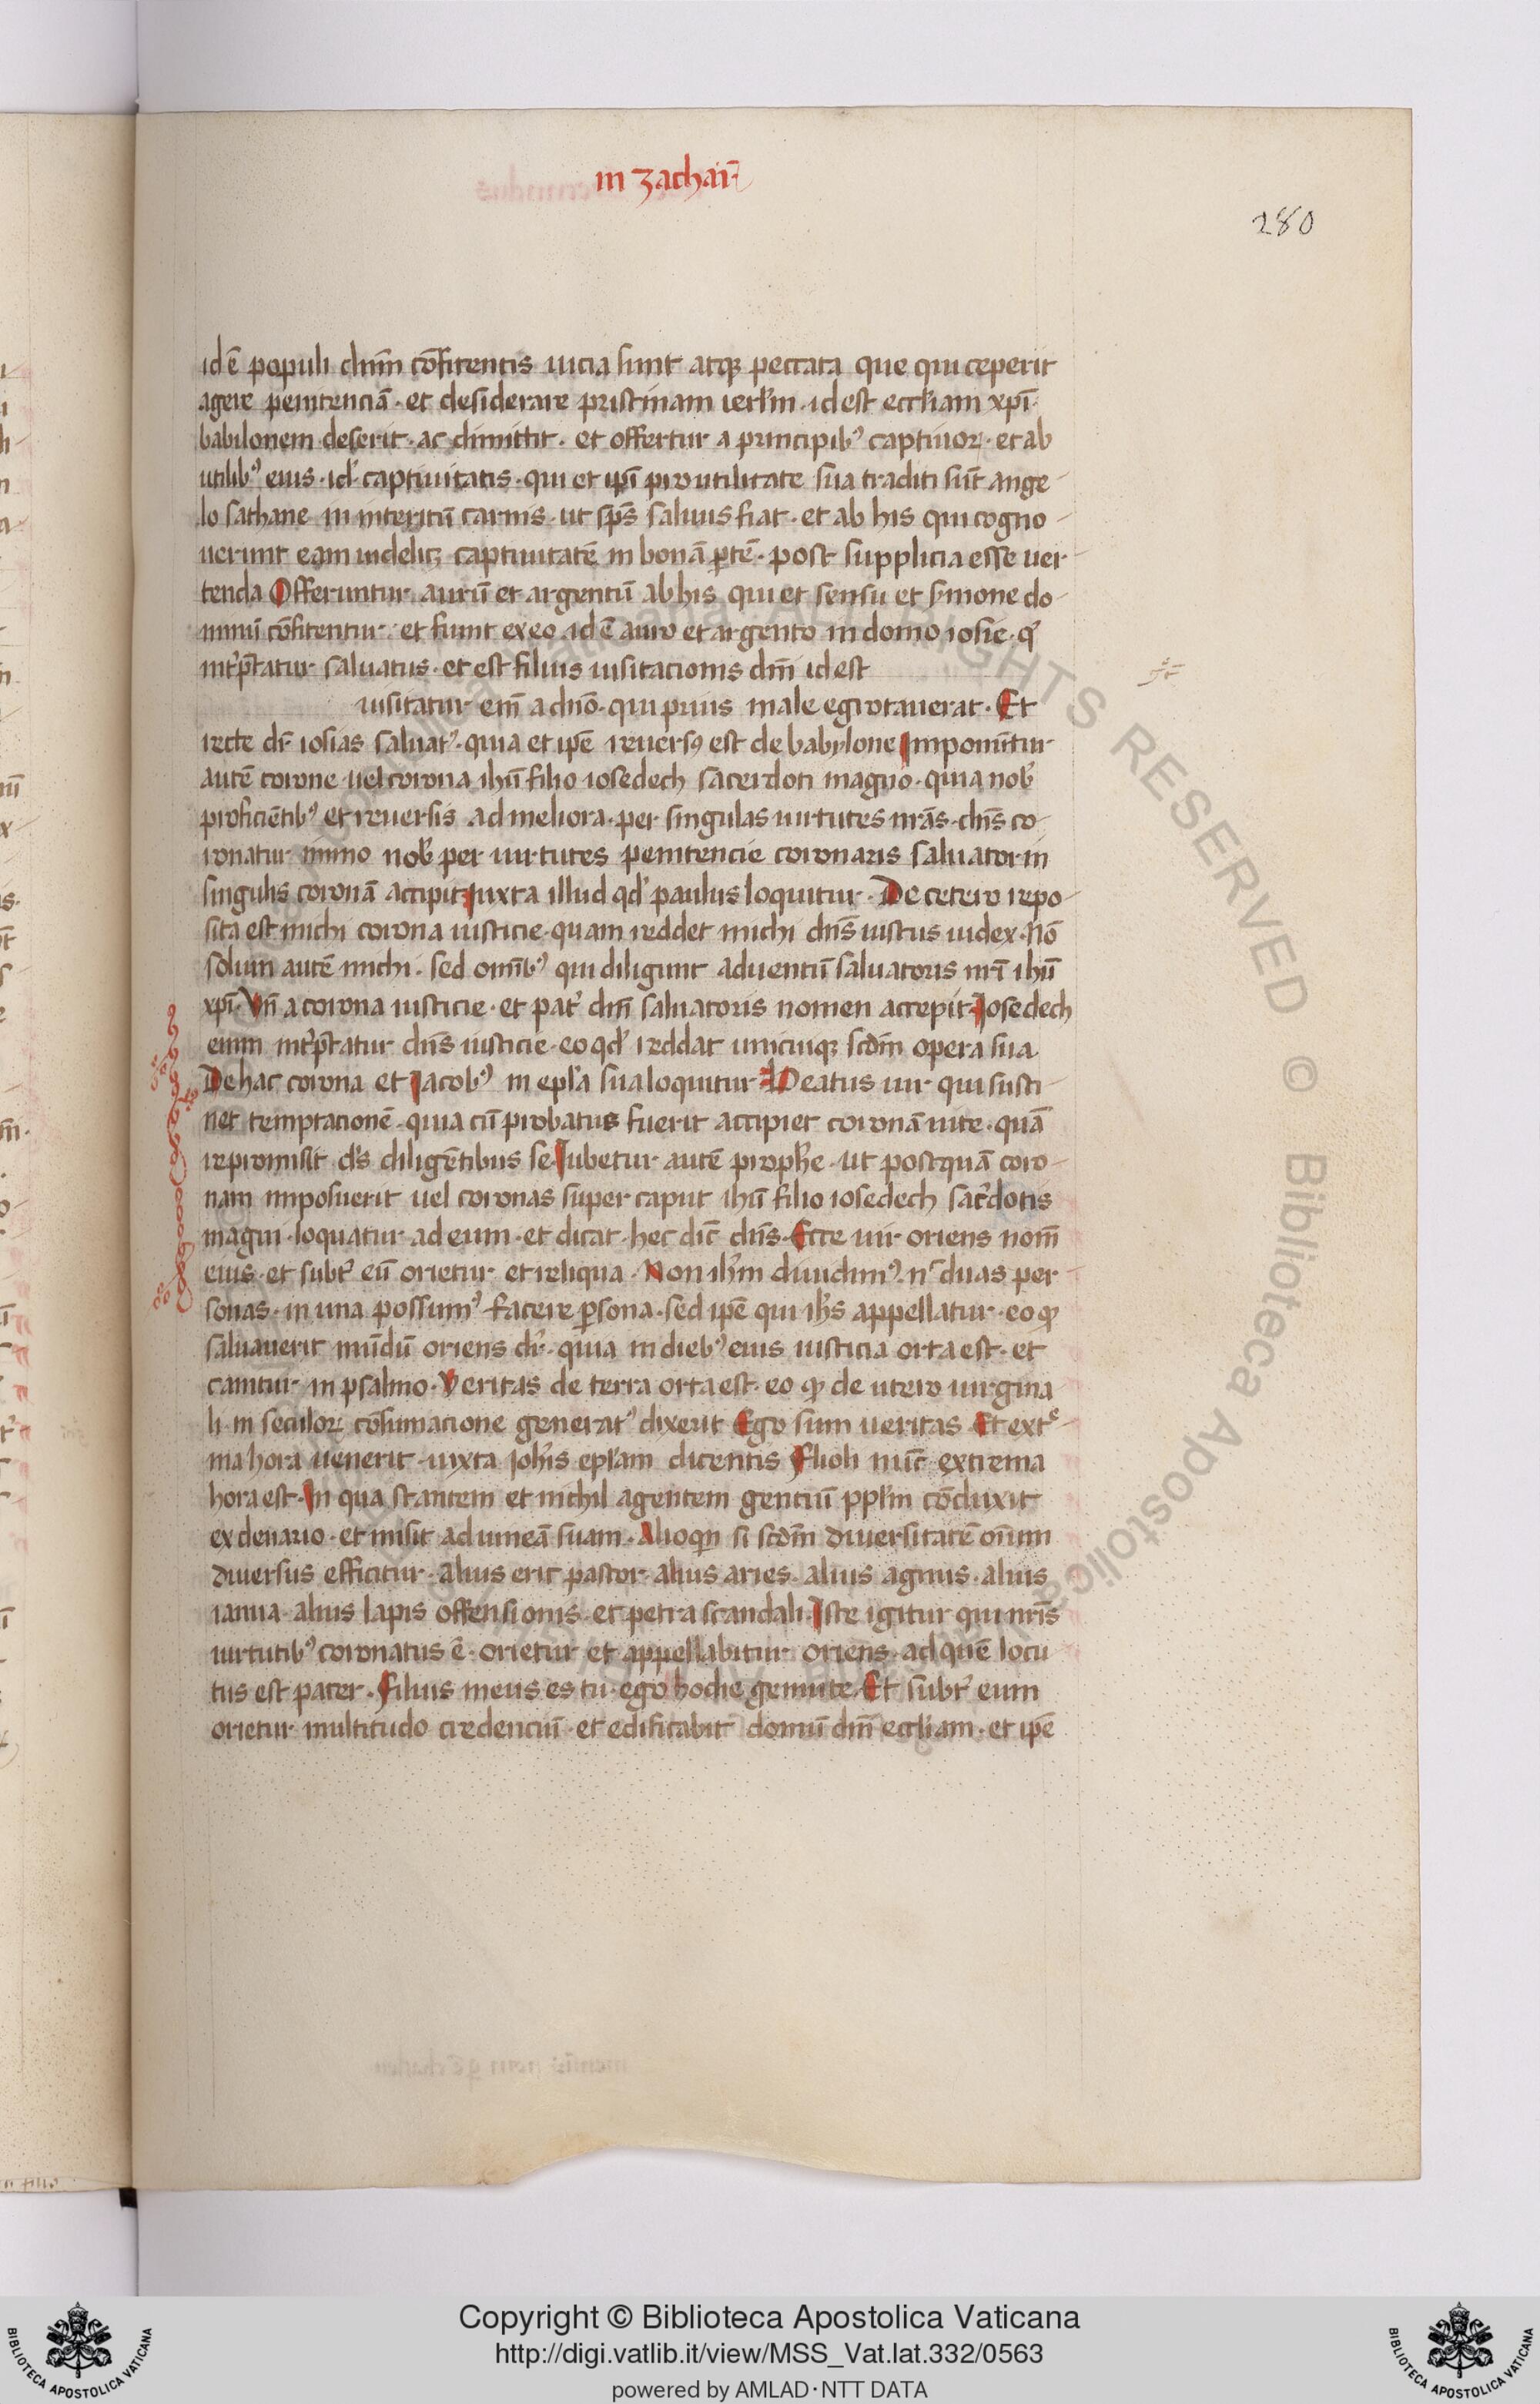 in zachaı̄
280
id ē populi dn̄m cōfitentis uicia sunt atqꝫ peccata que qui ceperit
agere penitenciā · et desiderare pristinam ierl̄m · id est eccl̄iam xp̄i ·
babilonem deserit · ac dimittit · et offertur a principibꝰ captiuoꝝ · et ab
utilibꝰ eius · id ̉ captiuitatis · qui et ip̄i pro utilitate sua traditi sūt ange
lo sathane in interitū carnis · ut sp̄s saluus fiat · et ab his qui cogno
uerunt eam uidelicꝫ captiuitatē in bonā ꝑtē · post supplicia esse uer
tenda Offeruntur aurū et argentū ab his qui et sensu et s̉mone do
minū cōfitentur · et fiunt ex eo id ē auro et argento in domo iosie · qͥ
int̉p̄tatur saluatus · et est filius uisitacionis dn̄i id est
uisitatur em̄ a dn̄o · qui prius male egrotauerat · Et
recte dr̄ iosias saluatꝰ · quia et ip̄e reuersꝰ est de babylone Imponūtur
autē corone uel corona ih̄u filio iosedech sacerdoti magno · quia nob̉
proficiētibꝰ et reuersis ad meliora · per singulas uirtutes nr̄as · dn̄s co
ronatur immo nob̉ per uirtutes penitencie coronatis saluator in
singulis coronā accipit iuxta illud qd̉ paulus loquitur · De cetero repo
sita est michi corona iusticie · quam reddet michi dn̄s iustus iudex · Nō
solum autē michi · sed omībꝰ qui diligunt aduentū saluatoris nr̄i ih̄u
xp̄i · Vn̄ a corona iusticie · et pat̉ dn̄i saluatoris nomen accepit · Iosedech
enim int̉p̄tatur dn̄s iusticie · eo qd̉ reddat unicuiqꝫ scd̄m opera sua
De hac corona et Iacobꝰ in ep̄l̄a sua loquitur · Beatus uir qui susti
net temptationē · quia cū probatus fuerit accipiet coronā uite · quā
repromisit d̄s diligētibus se · Iubetur autē prophe · ut postquā coro
nam imposuerit uel coronas super caput ih̄u filio iosedech sac̉dotis
magni · loquatur ad eum · et dicat · hec dic̄ dn̄s · Ecce uir oriens nom̄
eius · et subt̉ eū orietur et reliqua · Non ih̄m diuidimꝰ · nͨ duas per
sonas · in una possumꝰ facere ꝑsona · sed ip̄e qui ih̄s appellatur · eo ꝙ
saluauerit mūdū oriens dr̄ · quia in diebꝰ eius iusticia orta est · et
canitur in psalmo · Veritas de terra orta est · eo ꝙ de utero uirgina
li · in seculoꝝ cōsumacione generatꝰ dixerit Ego sum ueritas Et extͤ
ma hora uenerit · iuxta ioh̄is epl̄am dicentis Filioli nūc extrema
hora est · In qua stantem et nichil agentem gentiū ppl̄m cōduxit
ex denario · et misit ad uineā suam · Alioqͥn si scd̄m diuersitatē om̄um
diuersus efficitur · alius erit pastor · alius aries · alius agnus · alius
ianua · alius lapis offensionis · et petra scandali · Iste igitur qui nr̄is
uirtutibꝰ coronatus ē · orietur et appellabitur oriens · ad quē locu
tus est pater · Filius meus es tu · ego hodie genui te · Et subt̉ eum
orietur multitudo credenciū · et edificabit domū dn̄i eccl̄iam · et ip̄e
Copyright © Biblioteca Apostolica Vaticana
http://digi.vatlib.it/view/MSS_Vat.lat.332/0563
powered by AMLAD·NTT DATA